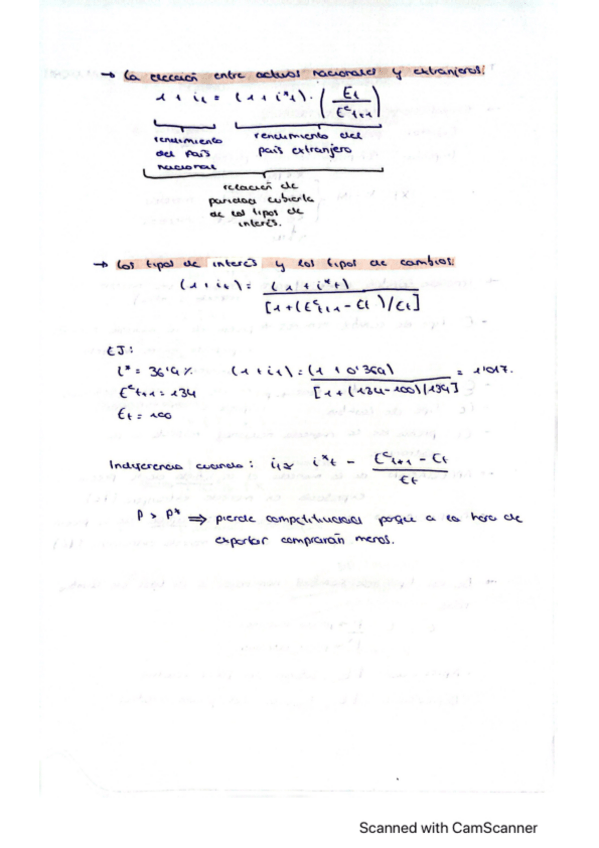 → La elección entre activos nacionales y extranjeros:
1 + it = (1 + i*t) · (Et / Eet+1)
rendimiento del país nacional
rendimiento del país extranjero
relación de
paridad cubierta
de los tipos de
interés.
→ Los tipos de interés y los tipos de cambios:
(1 + it) = (1 + i*t) / [1 + (Eet+1 - Et) / Et]
EJ:
i* = 36'9% (1 + it) = (1 + 0'369) / [1 + (134 - 100) / 134] = 1'017.
Eet+1 = 134
Et = 100
Indiferencia cuando: it ≈ i*t - (Eet+1 - Et) / Et
P > P* ⇒ pierde competitividad porque a la hora de
exportar comprarán menos.
Scanned with CamScanner